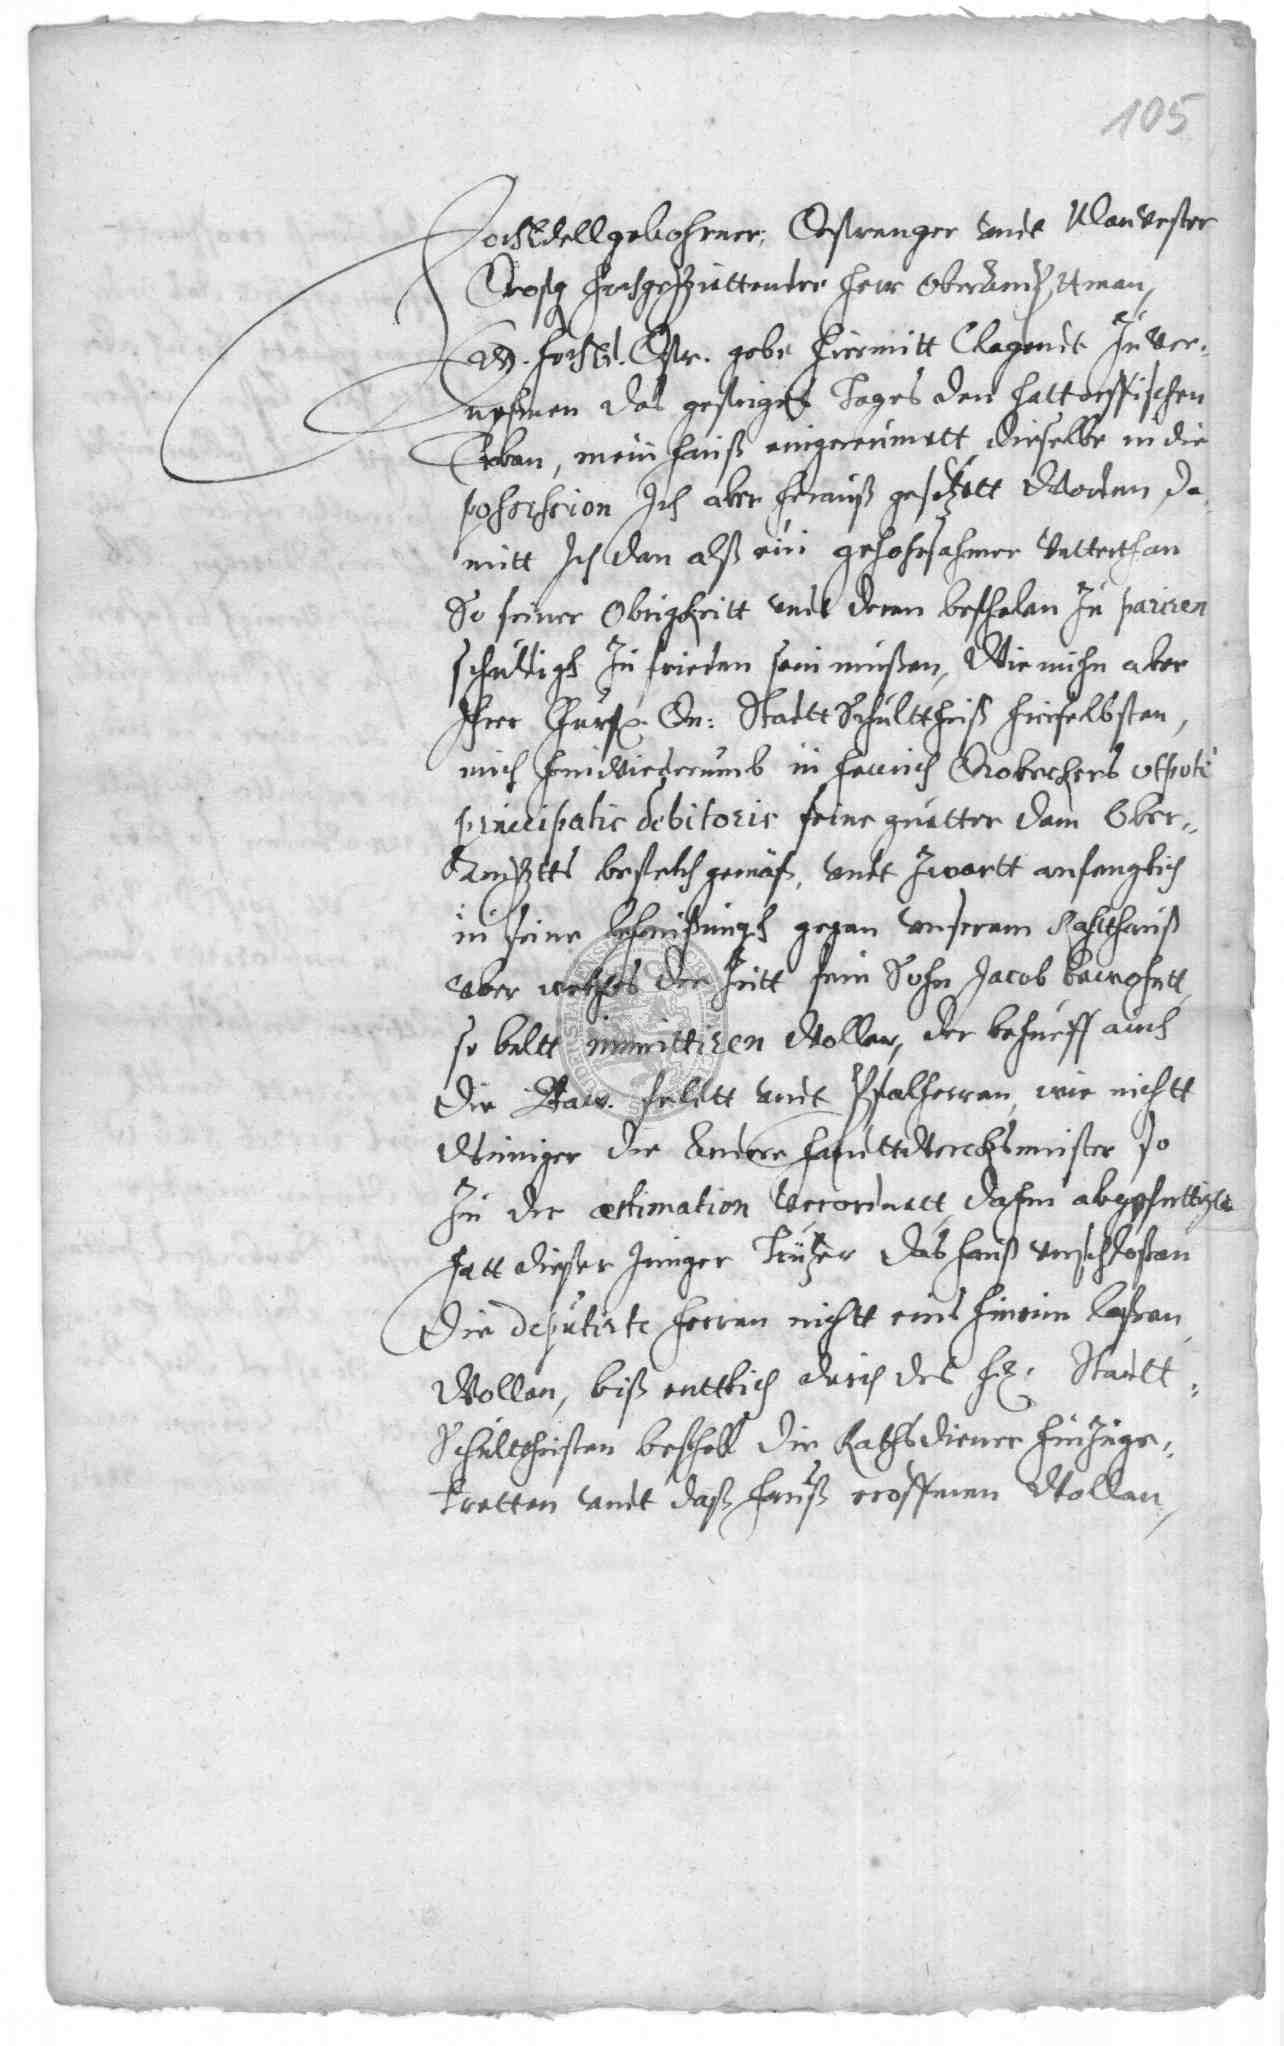 105
HochEdellgebohrner, Gestrenger undt Manvester
Grosg. hochgepiettender Herr OberAmbttman,
Ew. HochEd. Gstr. gebe hiermitt Clagendt zu ver-
nehmen das gestriges Tages den Hattorffischen
Erben, mein hauß eingereumett, dieselbe in die
possession Ich aber herauß gesetzett worden, da
mitt Ich dan alß ein gehohrsahmer Untterthan
So seiner Obrigkeitt undt deren befehelen zu pariren
schuldigh zu frieden sein mußen, Wie nuhn aber
Ihrer Churf. Gn: Stadtt Schulttheiß hierselbsten,
mich hinwiederumb in Henrich utpote
principalis debitoris seine guetter dem Ober-
Ambtts befelch gemäß, undt zwartt anfenglich
in seine behaußungh gegen unserem Rahtthauß
uber welches der Zeitt sein Sohn Jacob bewohntt
so baltt immittiren wollen, der behueff auch
die Baw. herren, wie nichtt
weiniger die andere handttwercksmeister so
zu der æstimation verordnett, dahin abgefertiget
hatt dießer junger das hauß verschloßen
die deputirte herren nichtt eins hinein laßen
wollen, biß enttlich durch des H. Stadtt-
Schulttheißen befehell die Rathsdiener hinzuge-
tretten undt daß hauß eroffnen wollen,